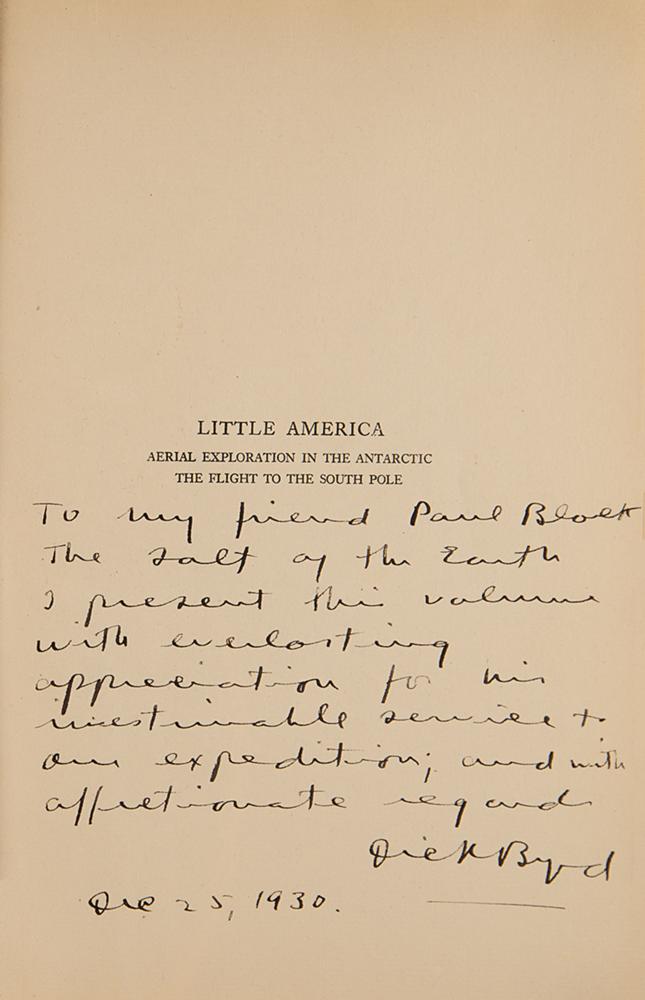 LITTLE AMERICA
AERIAL EXPLORATION IN THE ANTARCTIC
THE FLIGHT TO THE SOUTH POLE
To my friend Paul Block
The salt of the Earth
I present this volume
with everlasting
appreciation for his
inestimable service to
our expedition; and with
affectionate regard
Dick Byrd
Dec 25, 1930.